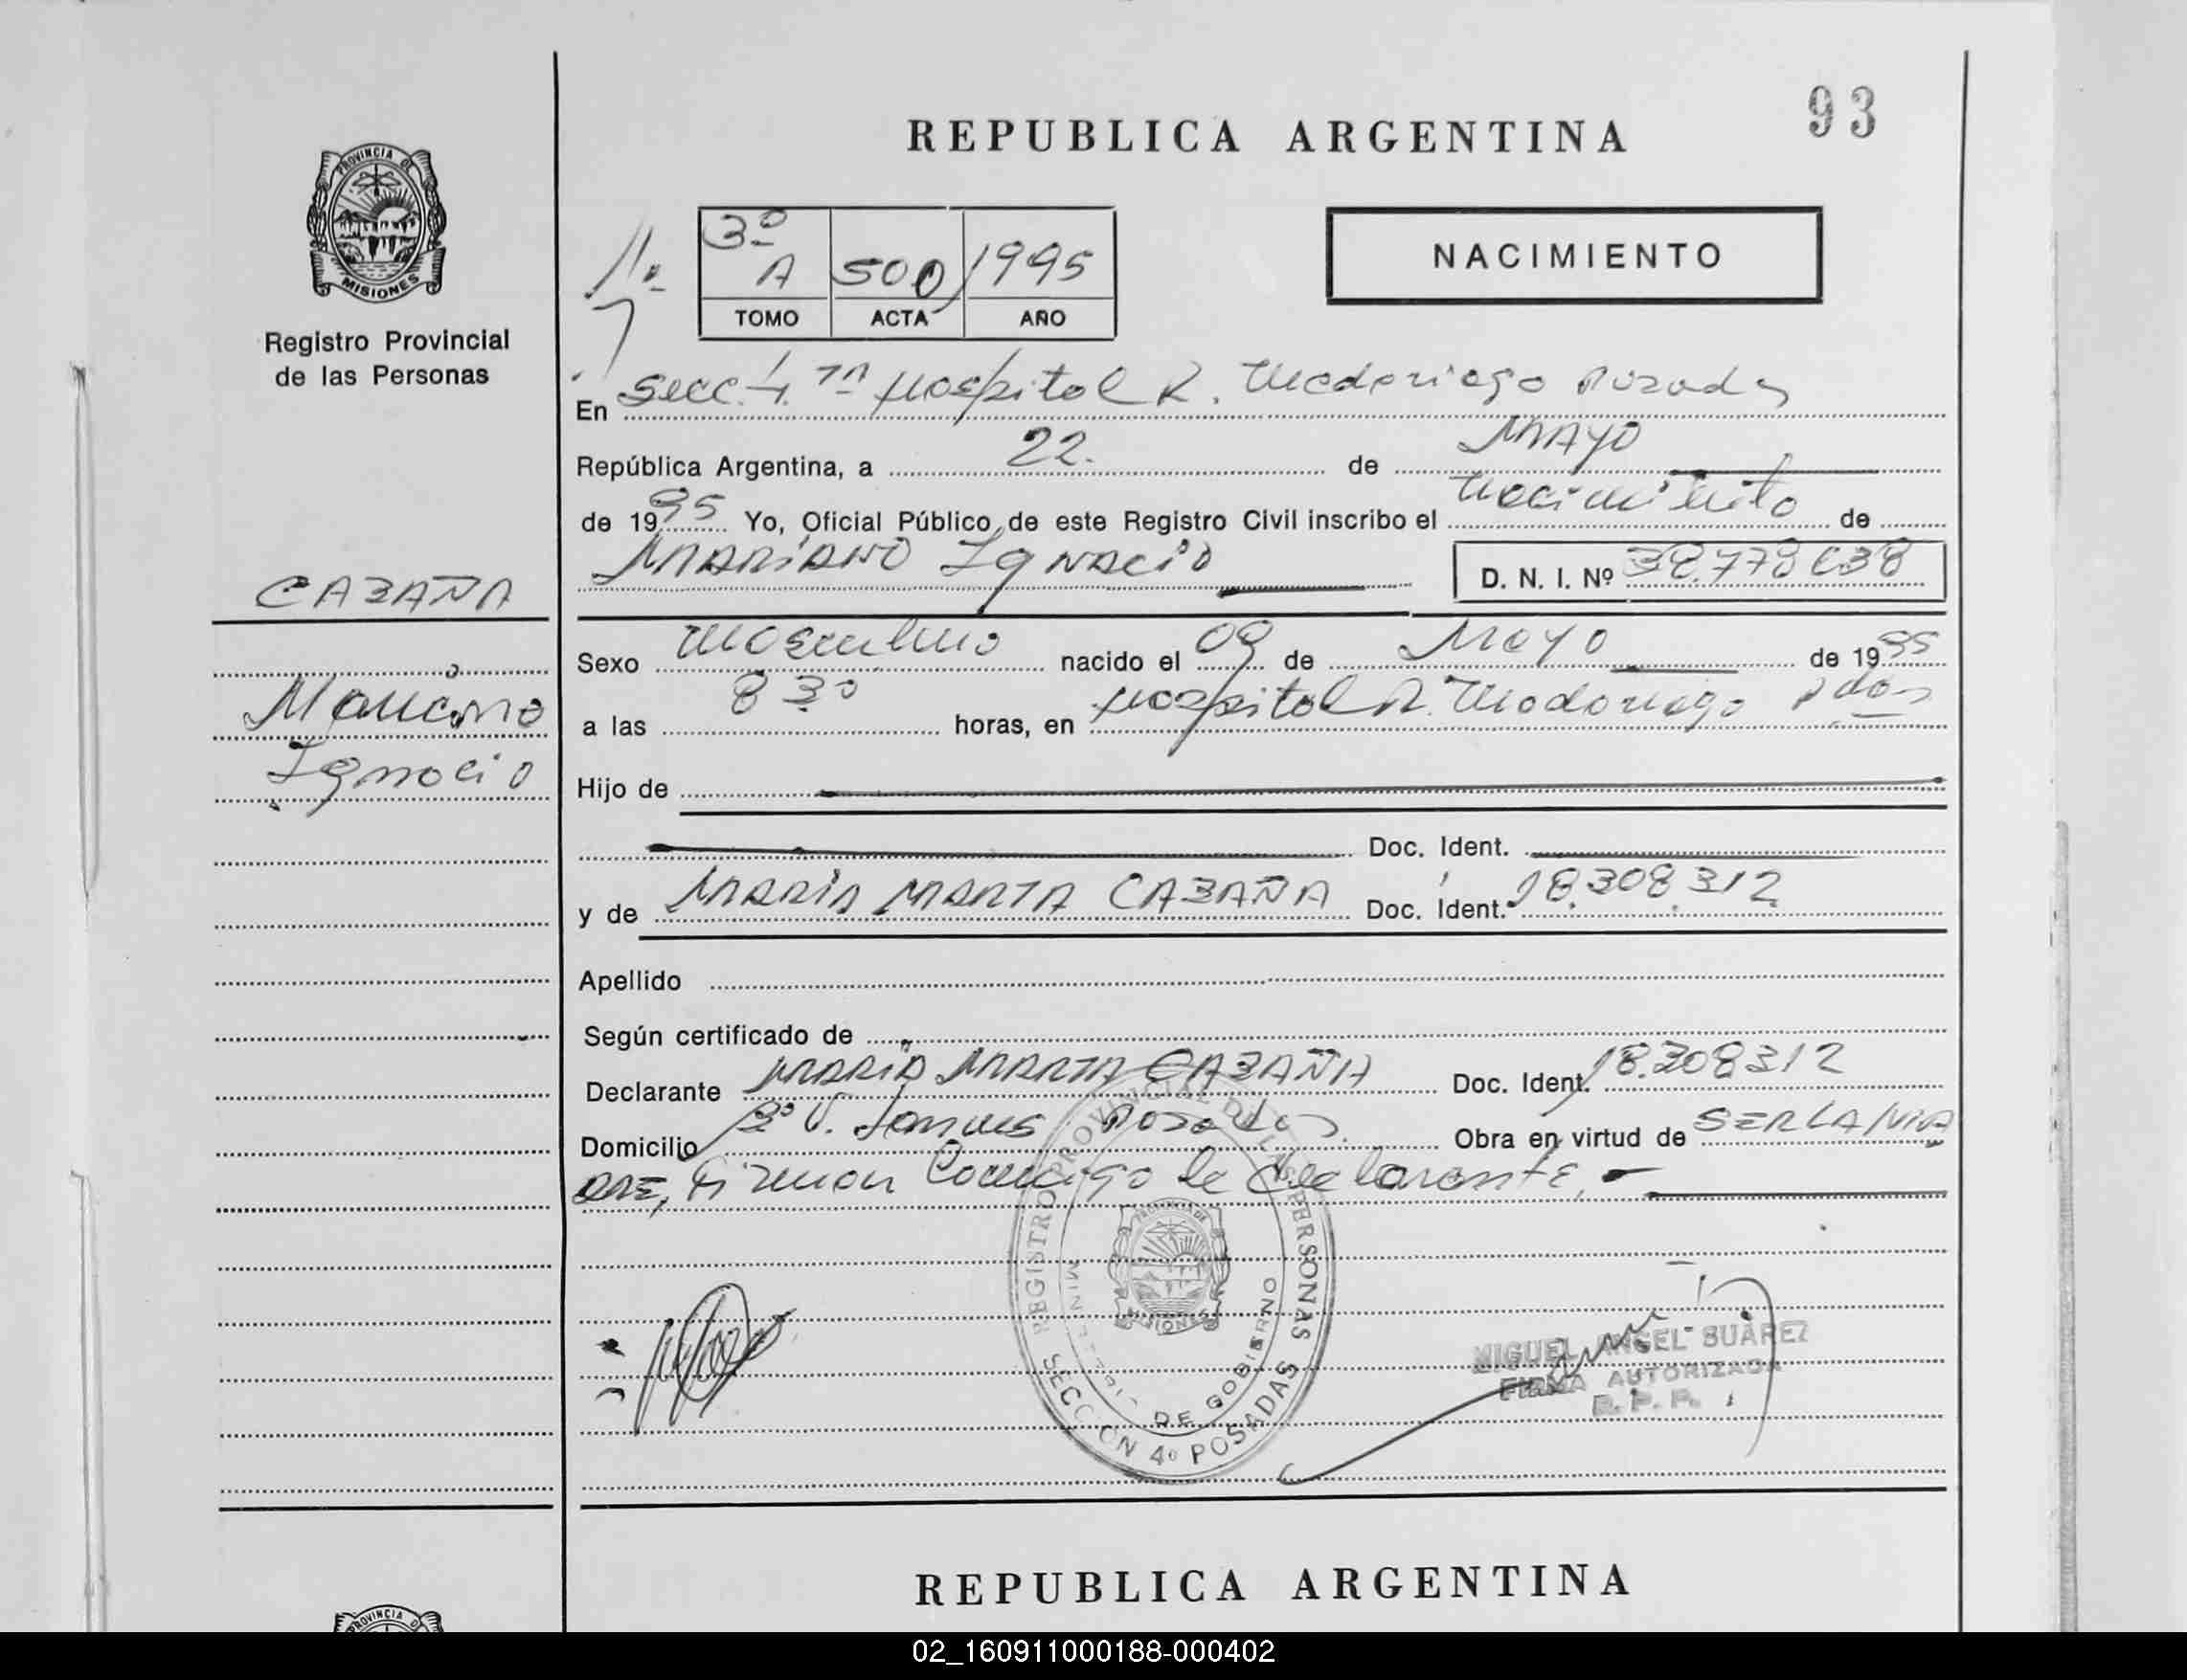 93
REPUBLICA ARGENTINA
PROVINCIA DE
MISIONES
Registro Provincial
de las Personas
3º
A 500 1995
TOMO ACTA AÑO
NACIMIENTO
En Secc. 4ta Hospital R. Madariaga Posadas
República Argentina, a 22. de MAYO
de 1995 Yo, Oficial Público de este Registro Civil inscribo el nacimiento de
MARIANO IgNAciO D. N. I. Nº 38.778638
CABAÑA
Sexo masculino nacido el 09 de Mayo de 1995
Mariano
a las 830 horas, en Hospital R. Madariaga Pdas
Ignacio
Hijo de
Doc. Ident.
y de MARIA MARTA CABAÑA Doc. Ident. 18.308.312
Apellido
Según certificado de
Declarante MARIA MARTA CABAÑA Doc. Ident. 18.308312
Domicilio Bº V. Posadas Obra en virtud de SER LA MA
DRE, Firman Conmigo la declarante.
REGISTRO PROVINCIAL DE LAS PERSONAS
MINISTERIO DE GOBIERNO
PROVINCIA DE
MISIONES
SECCION 4º POSADAS
MIGUEL ANGEL SUAREZ
FIRMA AUTORIZADA
R. P. P.
REPUBLICA ARGENTINA
PROVINCIA
02_160911000188-000402